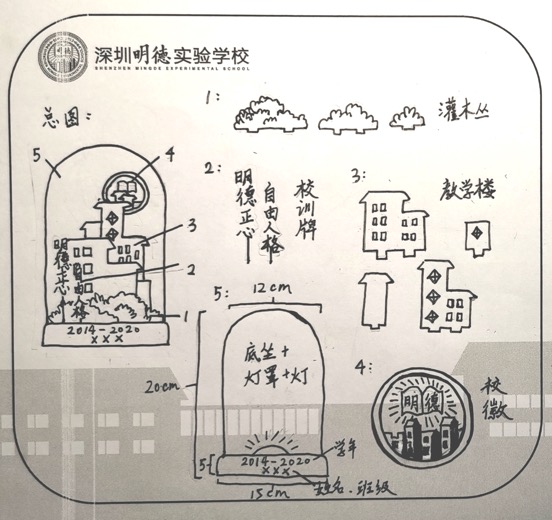 深圳明德实验学校
SHENZHEN MINGDE EXPERIMENTAL SCHOOL
总图:
5
4
3
2
1
明德正心
自由人格
2014-2020
×××
1:
灌木丛
2:
明德正心
自由人格
校训牌
3:
教学楼
5:
12cm
20cm
底坐+
灯罩+灯
5
2014-2020
×××
学年
姓名.班级
15cm
4:
明德
校徽